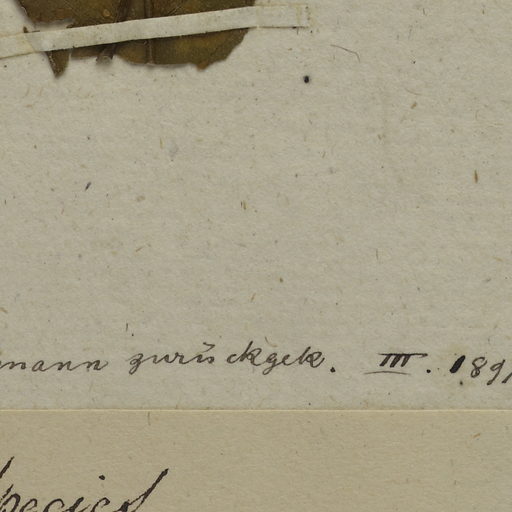 mann zurückgek. III. 189
Species